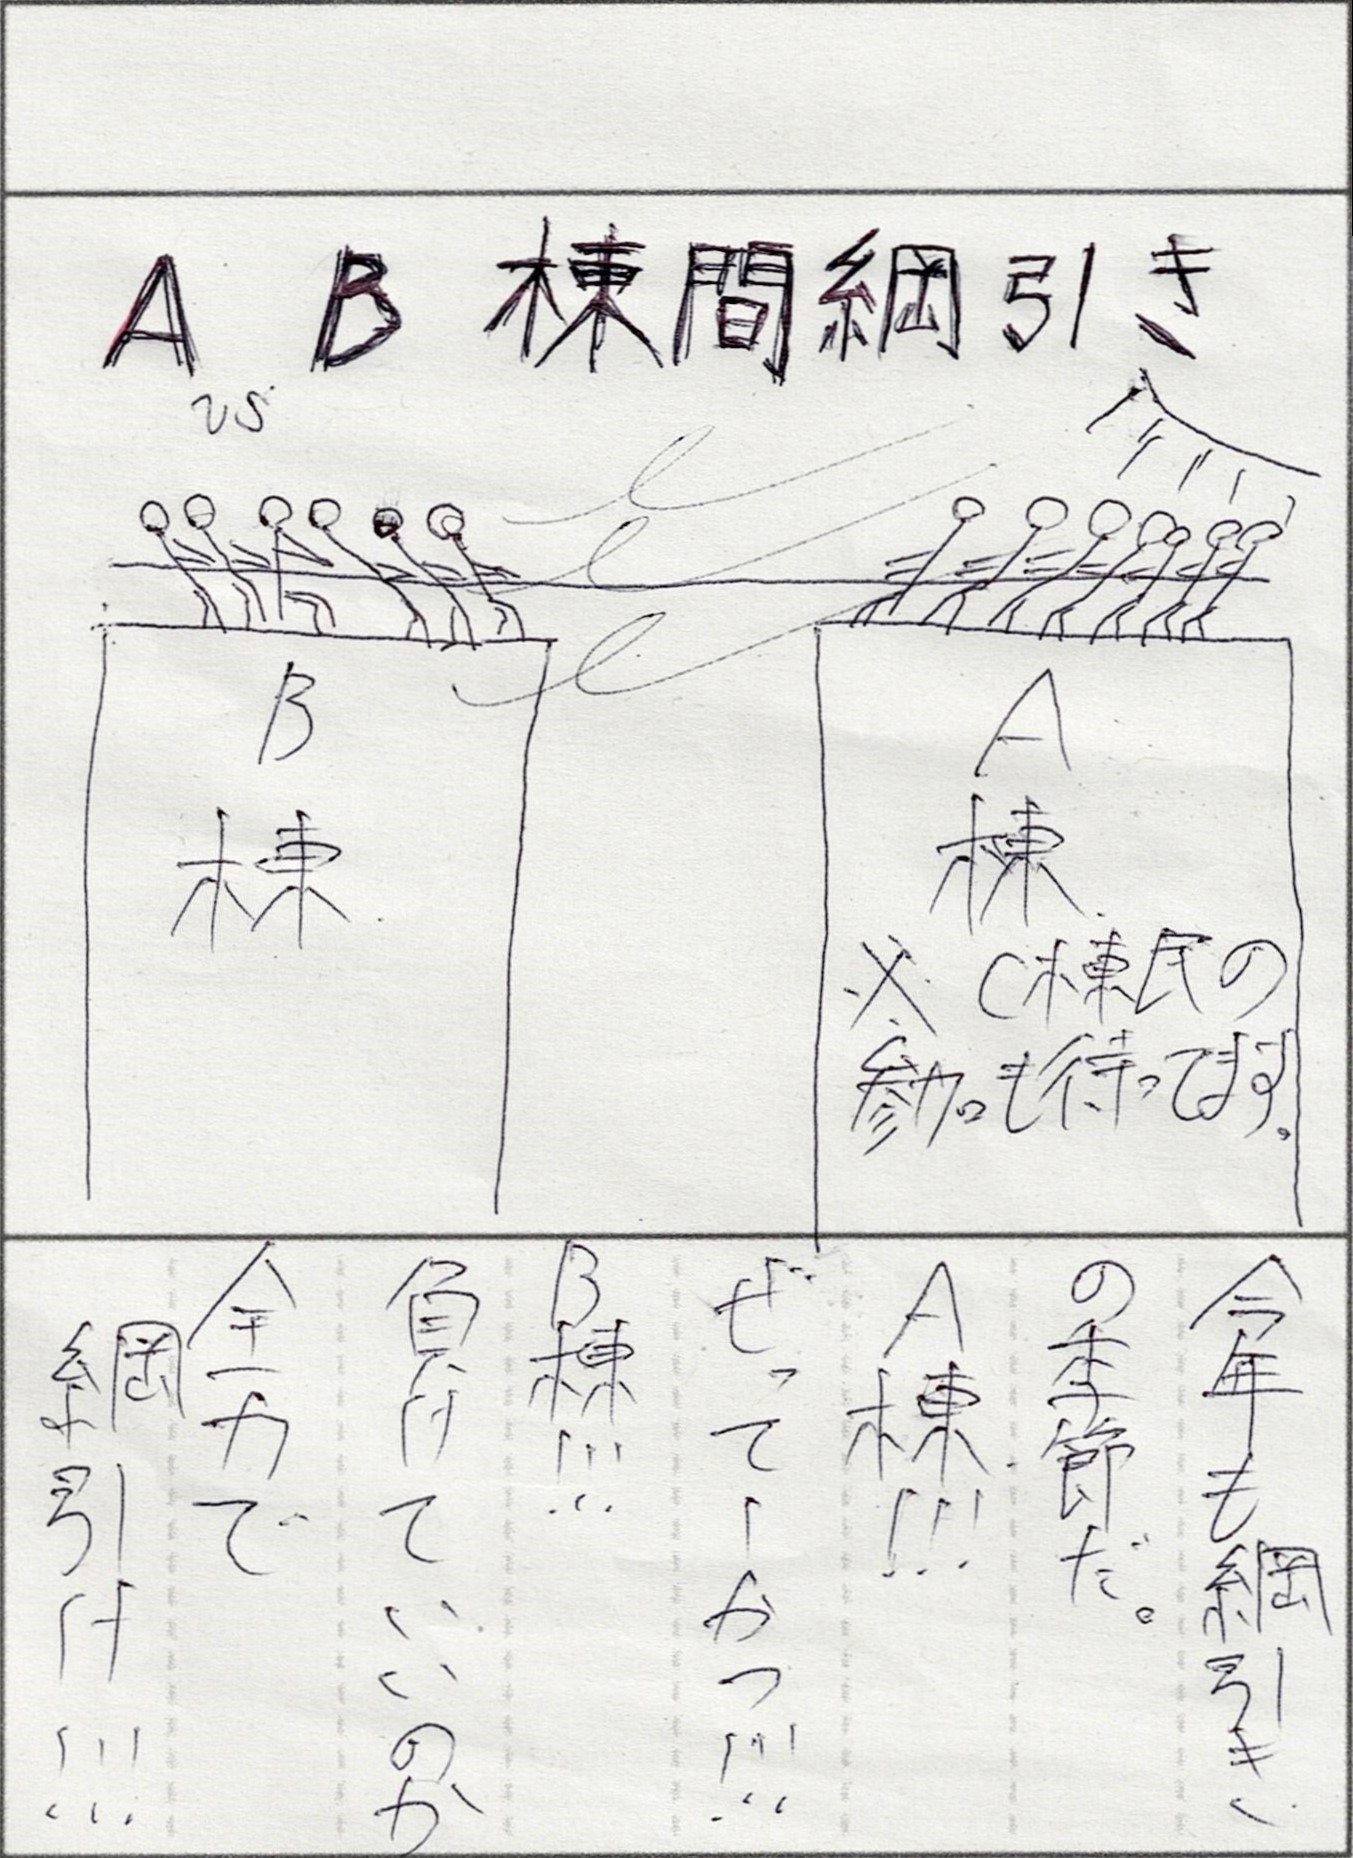 A B棟間綱引き
vs
B
棟
A
棟
※ C棟民の
参加も待ってます。
今年も綱引き
の季節だ。
A棟!!!
ぜってーかつ!!!
B棟!!!
負けていいのか
全力で
綱引け!!!